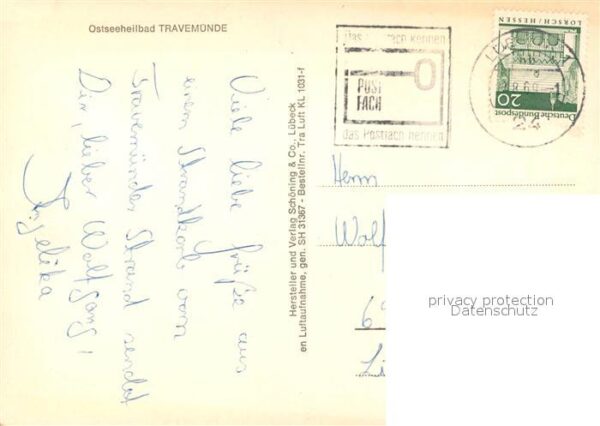 Ostseeheilbad TRAVEMÜNDE
Viele liebe Grüße aus
einem Strandkorb vom
Travemünder Strand sendet
Dir, lieber Wolfgang,
Angelika
Hersteller und Verlag Schöning & Co., Lübeck
en Luftaufnahme, gen. SH 31367 - Bestellnr. Tra Luft KL 1031-f
Das Postfach kennen
POST
FACH
das Postfach nennen
LORSCH/HESSEN
20
Deutsche Bundespost
24
Herrn
Wolf
69
privacy protection
Datenschutz